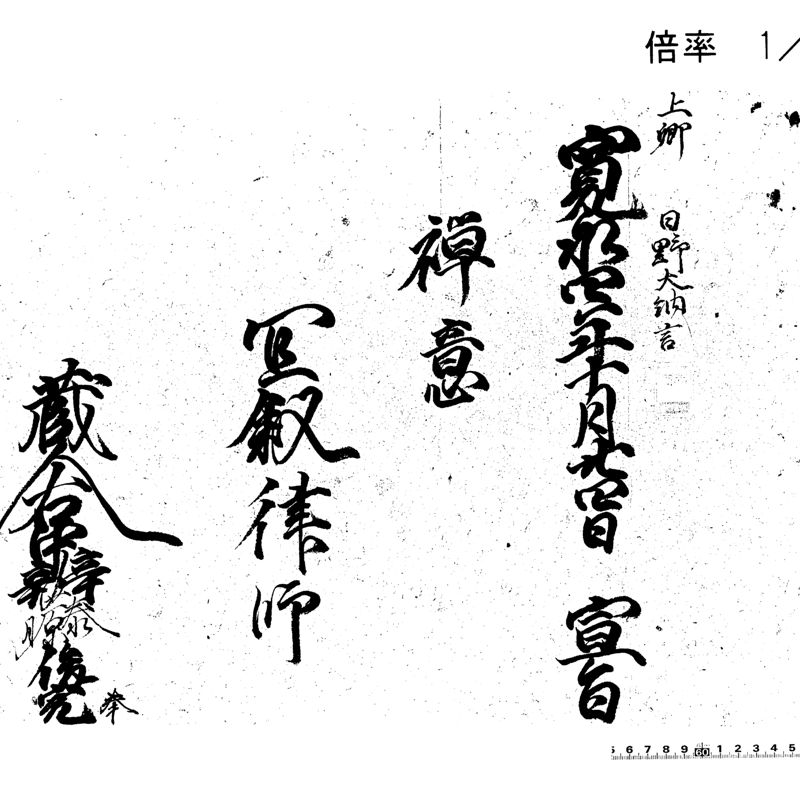 倍率 1/
上卿 日野大納言
寛永四年十月廿四日 宣旨
禅意
宜叙律師
蔵人右中辨藤原俊完奉
6 7 8 9 60 1 2 3 4 5